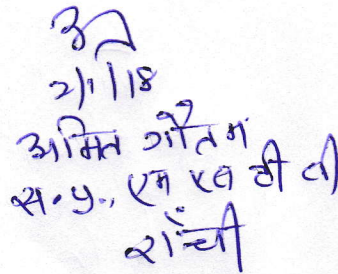 2/1/18
अमित गौतम
स.प्र., एम एस टी सी
राँची